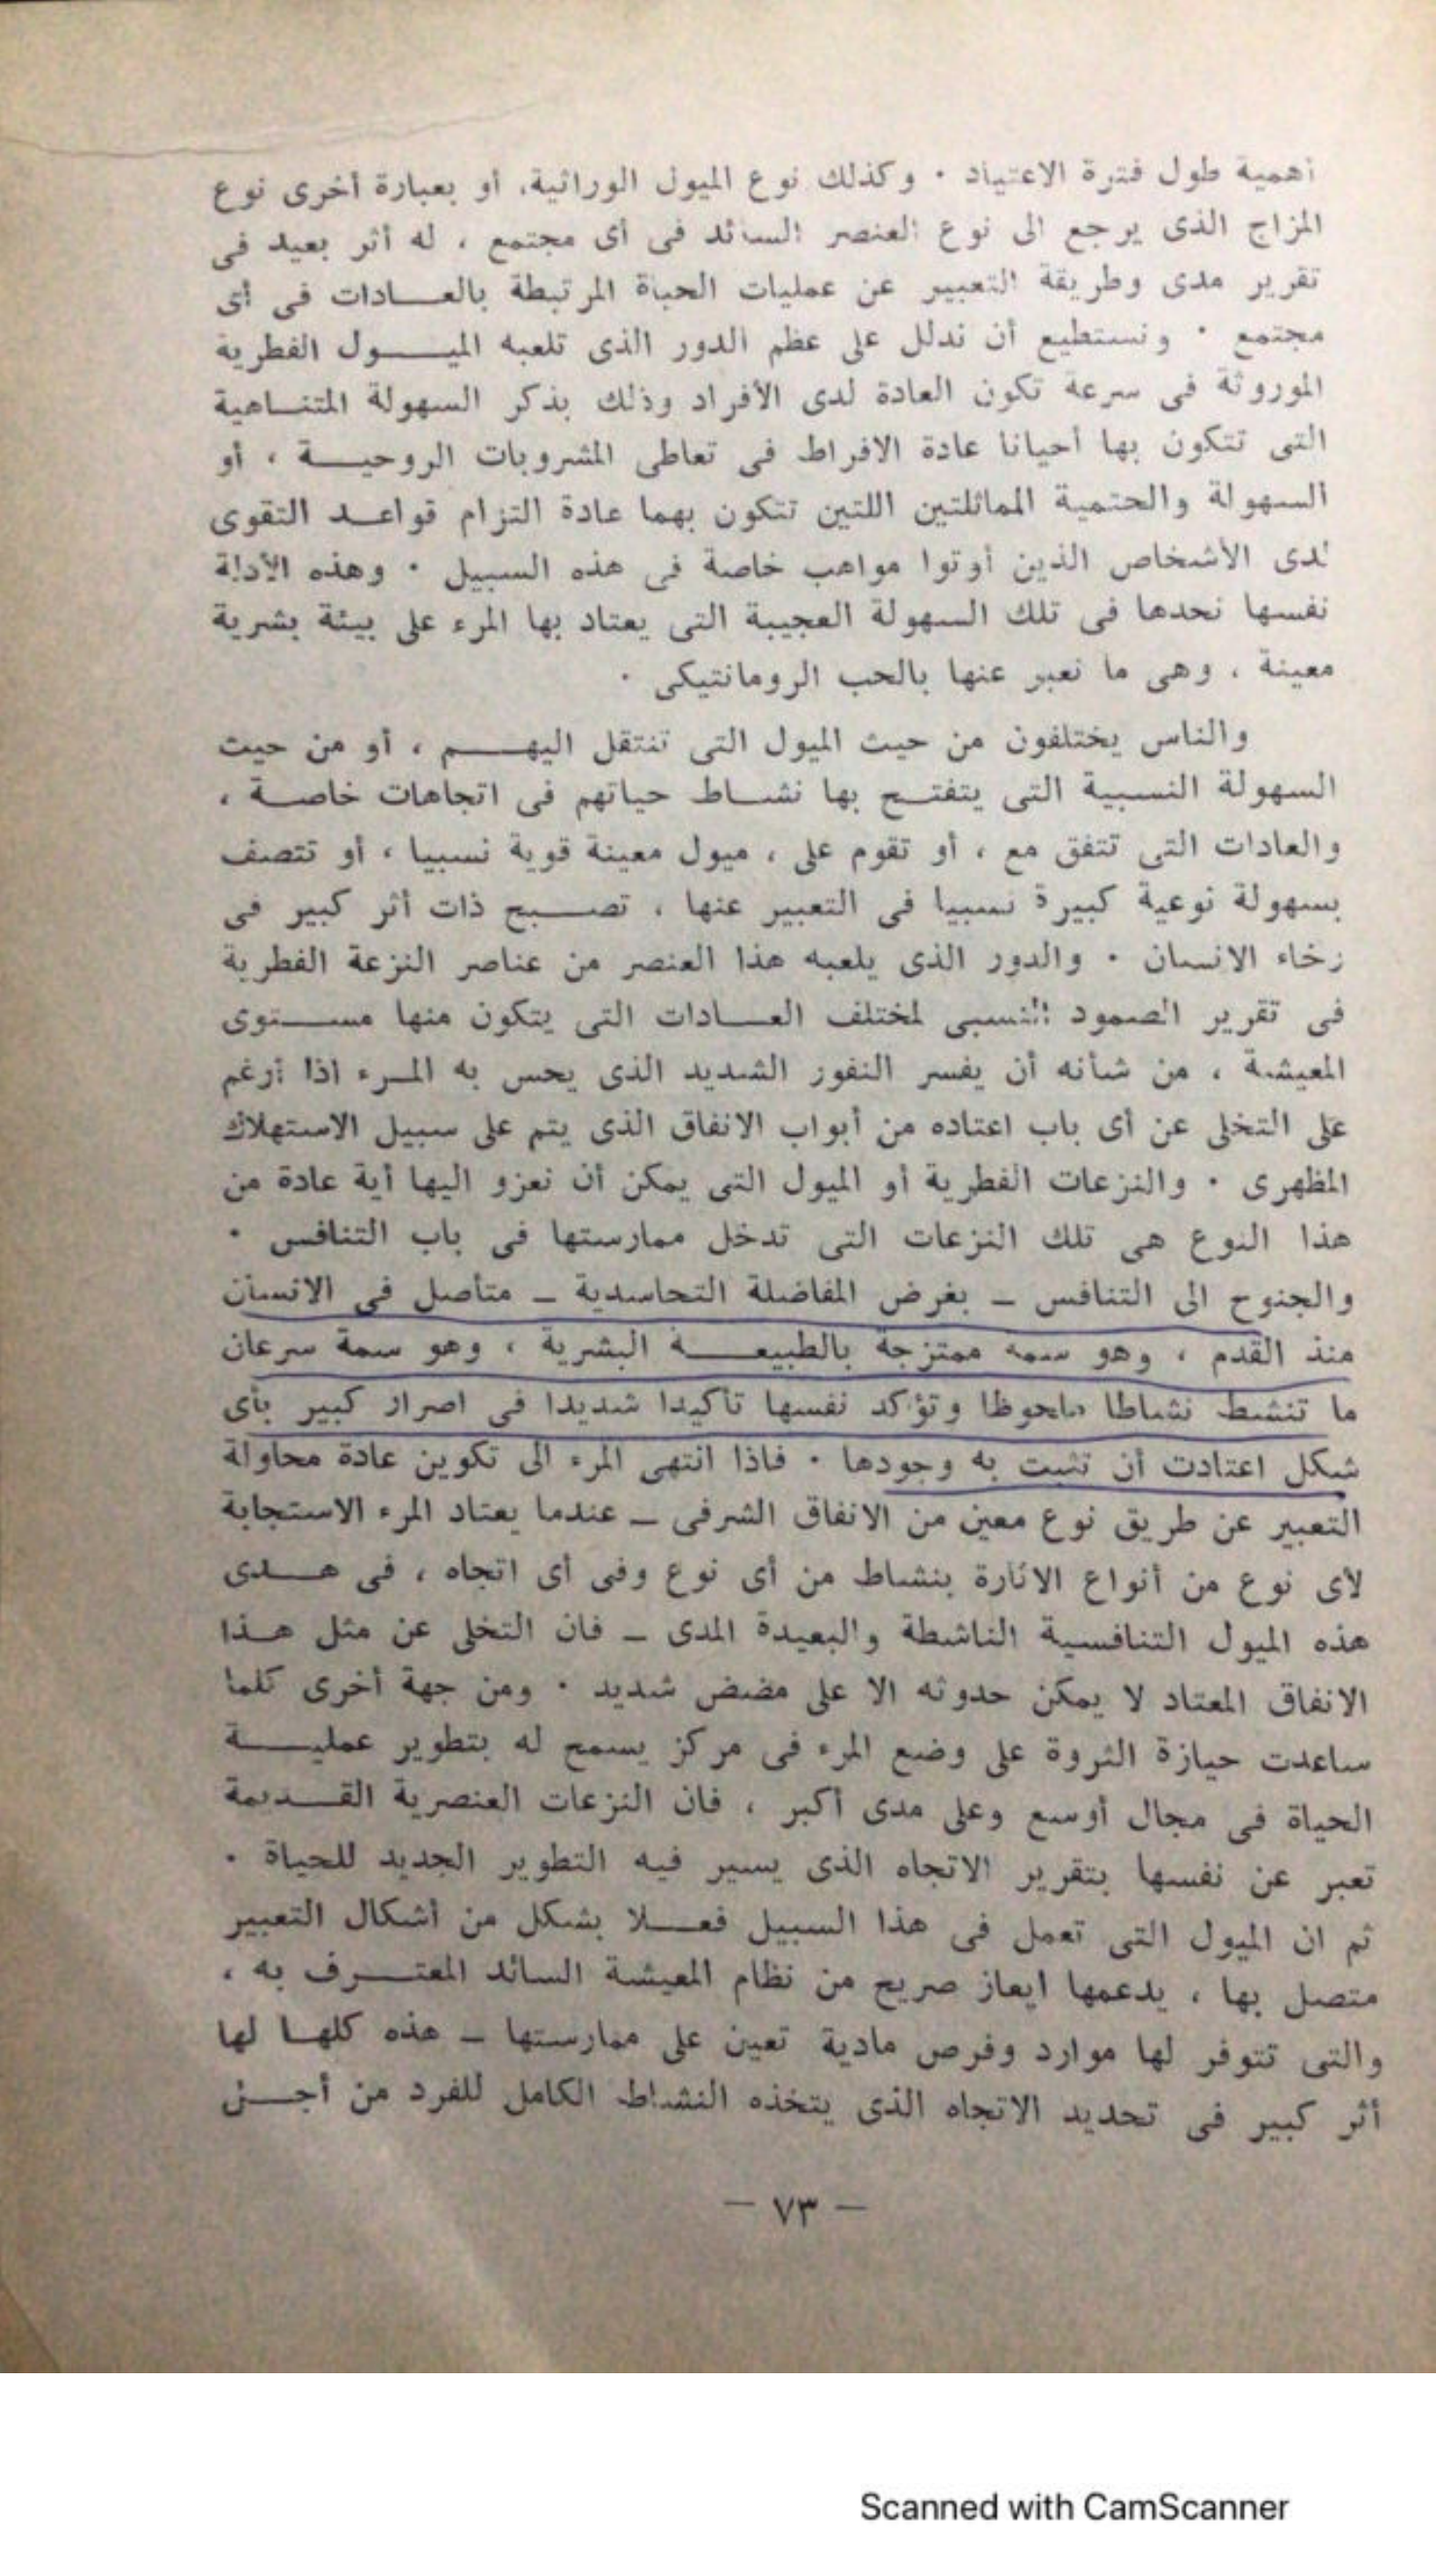 أهمية طول فترة الاعتياد ٠ وكذلك نوع الميول الوراثية، أو بعبارة أخرى نوع
المزاج الذى يرجع الى نوع العنصر السائد فى أى مجتمع ، له أثر بعيد فى
تقرير مدى وطريقة التعبير عن عمليات الحياة المرتبطة بالعادات فى أى
مجتمع ٠ ونستطيع أن ندلل على عظم الدور الذى تلعبه الميول الفطرية
الموروثة فى سرعة تكون العادة لدى الأفراد وذلك بذكر السهولة المتناهية
التى تتكون بها أحيانا عادة الافراط فى تعاطى المشروبات الروحية ، أو
السهولة والحتمية المماثلتين اللتين تتكون بهما عادة التزام قواعد التقوى
لدى الأشخاص الذين أوتوا مواهب خاصة فى هذه السبيل ٠ وهذه الأدلة
نفسها نجدها فى تلك السهولة العجيبة التى يعتاد بها المرء على بيئة بشرية
معينة ، وهى ما نعبر عنها بالحب الرومانتيكى ٠
والناس يختلفون من حيث الميول التى تنتقل اليهم ، أو من حيث
السهولة النسبية التى يتفتح بها نشاط حياتهم فى اتجاهات خاصة ،
والعادات التى تتفق مع ، أو تقوم على ، ميول معينة قوية نسبيا ، أو تتصف
بسهولة نوعية كبيرة نسبيا فى التعبير عنها ، تصبح ذات أثر كبير فى
رخاء الانسان ٠ والدور الذى يلعبه هذا العنصر من عناصر النزعة الفطرية
فى تقرير الصمود النسبى لمختلف العادات التى يتكون منها مستوى
المعيشة ، من شأنه أن يفسر النفور الشديد الذى يحس به المرء اذا أرغم
على التخلى عن أى باب اعتاده من أبواب الانفاق الذى يتم على سبيل الاستهلاك
المظهرى ٠ والنزعات الفطرية أو الميول التى يمكن أن نعزو اليها أية عادة من
هذا النوع هى تلك النزعات التى تدخل ممارستها فى باب التنافس ٠
والجنوح الى التنافس ــ بغرض المفاضلة التحاسدية ــ متأصل فى الانسان
منذ القدم ، وهو سمه ممتزجة بالطبيعة البشرية ، وهو سمة سرعان
ما تنشط نشاطا ملحوظا وتؤكد نفسها تأكيدا شديدا فى اصرار كبير بأى
شكل اعتادت أن تثبت به وجودها ٠ فاذا انتهى المرء الى تكوين عادة محاولة
التعبير عن طريق نوع معين من الانفاق الشرفى ــ عندما يعتاد المرء الاستجابة
لأى نوع من أنواع الاثارة بنشاط من أى نوع وفى أى اتجاه ، فى هدى
هذه الميول التنافسية الناشطة والبعيدة المدى ــ فان التخلى عن مثل هذا
الانفاق المعتاد لا يمكن حدوثه الا على مضض شديد ٠ ومن جهة أخرى كلما
ساعدت حيازة الثروة على وضع المرء فى مركز يسمح له بتطوير عملية
الحياة فى مجال أوسع وعلى مدى أكبر ، فان النزعات العنصرية القديمة
تعبر عن نفسها بتقرير الاتجاه الذى يسير فيه التطوير الجديد للحياة ٠
ثم ان الميول التى تعمل فى هذا السبيل فعلا بشكل من أشكال التعبير
متصل بها ، يدعمها ايعاز صريح من نظام المعيشة السائد المعترف به ،
والتى تتوفر لها موارد وفرص مادية تعين على ممارستها ــ هذه كلها لها
أثر كبير فى تحديد الاتجاه الذى يتخذه النشاط الكامل للفرد من أجل
— ٧٣ —
Scanned with CamScanner